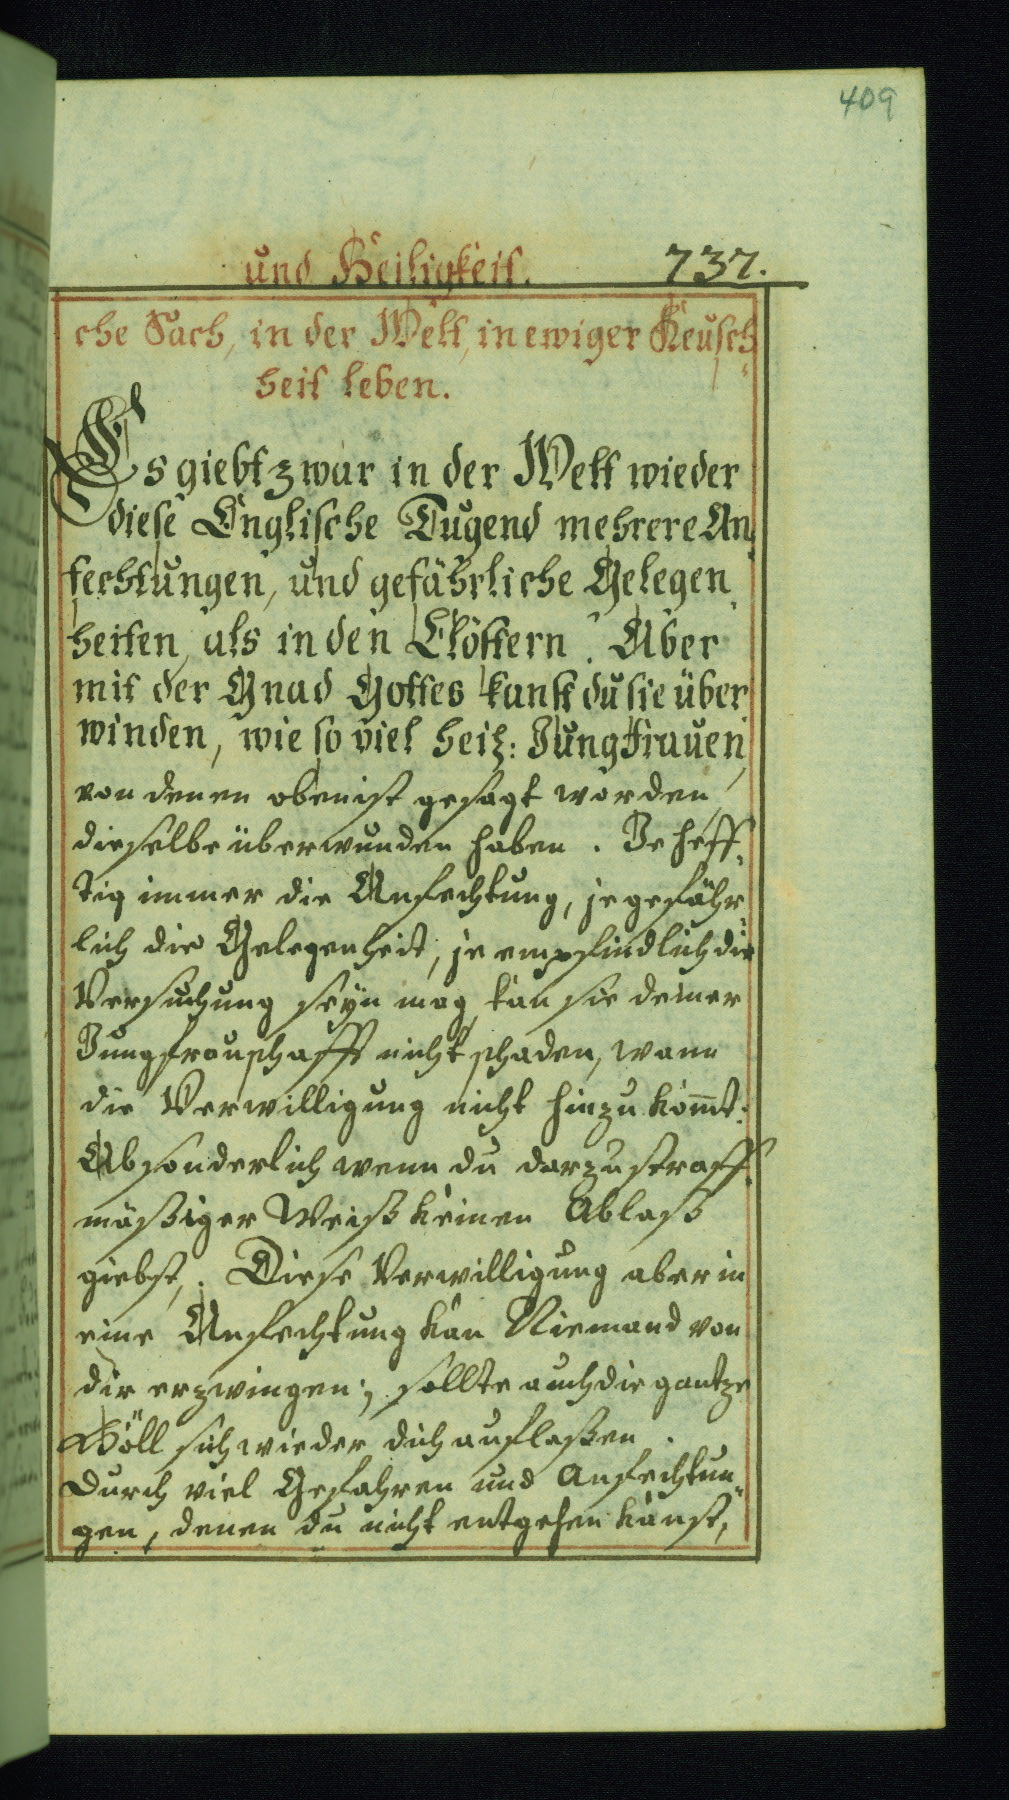 409
und Heiligkeit. 737.
che Sach, in der Welt, in ewiger Keusch=
heit leben.
Es giebt zwar in der Welt wieder
diese Englische Tugend mehrere An=
fechtungen, und gefährliche Gelegen=
heiten, als in den Clöstern. Aber
mit der Gnad Gottes kanst du sie über=
winden, wie so viel heil: Jungfrauen,
von denen oben ist gesagt worden,
dieselbe überwunden haben. Je heff=
tig immer die Anfechtung, je gefähr=
lich die Gelegenheit, je empfindlich die
Versuchung seÿn mag, kan sie deiner
Jungfrauschafft nicht schaden, wann
die Verwilligung nicht hinzu kom̅t.
Absonderlich wenn du darzu straff=
mäßiger Weiß keinen Ablaß
giebst,. Diese Verwilligung aber in
eine Anfechtung kan Niemand von
dir erzwingen; sollte auch die gantze
Höll sich wieder dich auflaßen.
Durch viel Gefahren und Anfechtun=
gen, denen du nicht entgehen kanst,